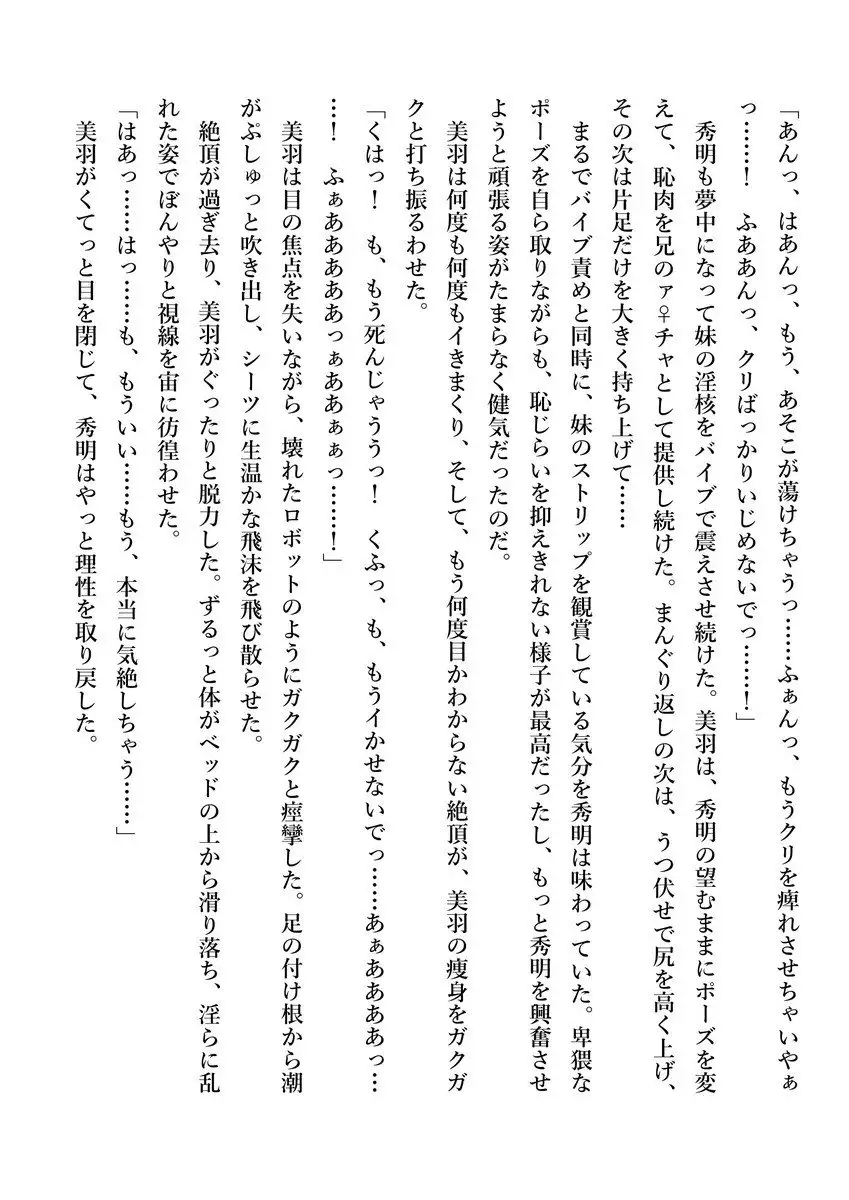 「あんっ、はあんっ、もう、あそこが蕩けちゃうっ……ふぁんっ、もうクリを痺れさせちゃいやぁ
っ……！　ふああんっ、クリばっかりいじめないでっ……！」
　秀明も夢中になって妹の淫核をバイブで震えさせ続けた。美羽は、秀明の望むままにポーズを変
えて、恥肉を兄のァ♀チャとして提供し続けた。まんぐり返しの次は、うつ伏せで尻を高く上げ、
その次は片足だけを大きく持ち上げて……
　まるでバイブ責めと同時に、妹のストリップを観賞している気分を秀明は味わっていた。卑猥な
ポーズを自ら取りながらも、恥じらいを抑えきれない様子が最高だったし、もっと秀明を興奮させ
ようと頑張る姿がたまらなく健気だったのだ。
　美羽は何度も何度もイきまくり、そして、もう何度目かわからない絶頂が、美羽の痩身をガクガ
クと打ち振るわせた。
「くはっ！　も、もう死んじゃううっ！　くふっ、も、もうイかせないでっ……あぁああああっ…
…！　ふぁああああああっぁああぁぁっ……！」
　美羽は目の焦点を失いながら、壊れたロボットのようにガクガクと痙攣した。足の付け根から潮
がぷしゅっと吹き出し、シーツに生温かな飛沫を飛び散らせた。
　絶頂が過ぎ去り、美羽がぐったりと脱力した。ずるっと体がベッドの上から滑り落ち、淫らに乱
れた姿でぼんやりと視線を宙に彷徨わせた。
「はあっ……はっ……も、もういい……もう、本当に気絶しちゃう……」
　美羽がくてっと目を閉じて、秀明はやっと理性を取り戻した。